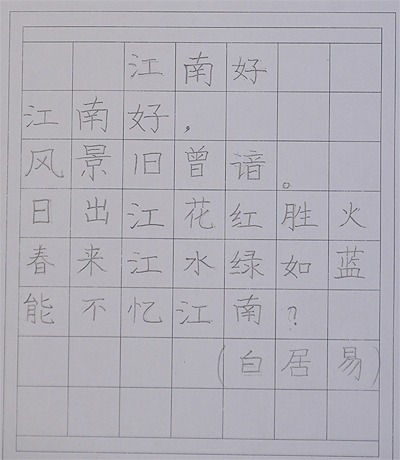 江南好
江南好，
风景旧曾谙。
日出江花红胜火
春来江水绿如蓝
能不忆江南？
（白居易）